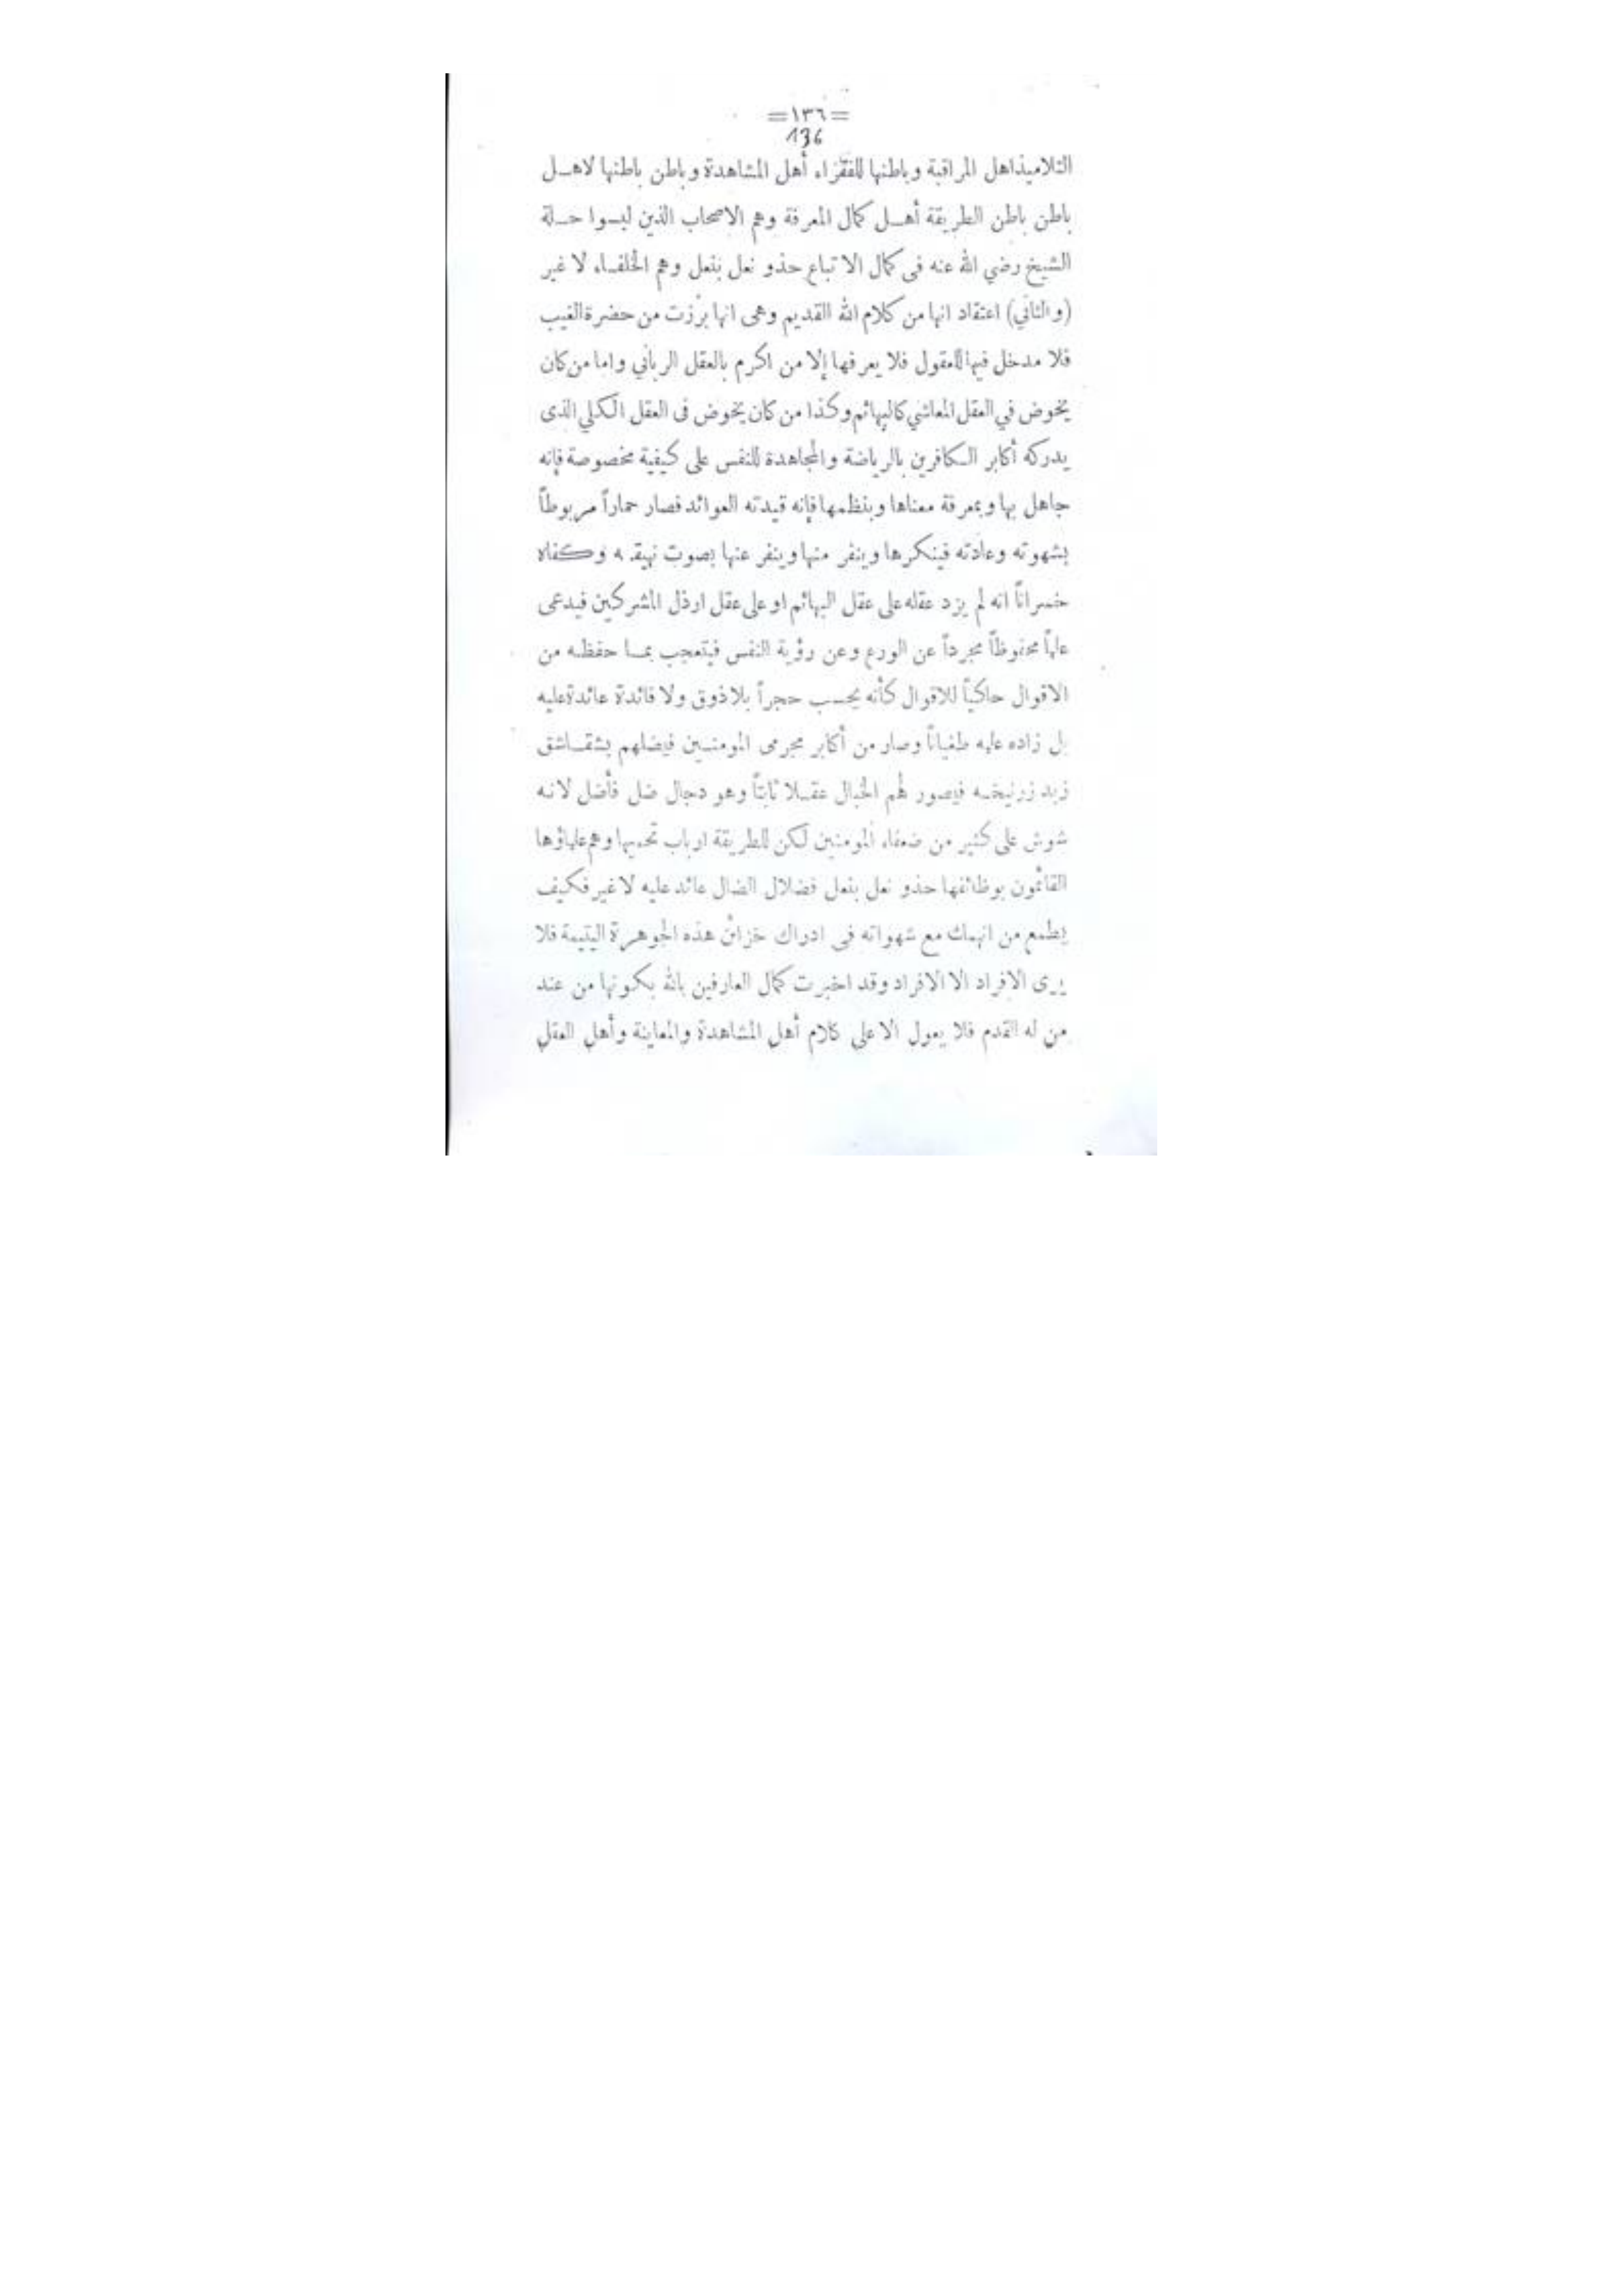 =١٣٦=
136
التلاميذ اهل المراقبة وباطنها للفقراء أهل المشاهدة وباطن باطنها لاهـل
باطن باطن الطريقة أهـل كمال المعرفة وهم الاصحاب الذين لبسوا حـلة
الشيخ رضي الله عنه فى كمال الاتباع حذو نعل بنعل وهم الخلفاء لا غير
(والثاني) اعتقاد انها من كلام الله القديم وهى انها برزت من حضرة الغيب
فلا مدخل فيها للعقول فلا يعرفها إلا من اكرم بالعقل الرباني واما من كان
يخوض في العقل المعاشي كالبهائم وكذا من كان يخوض فى العقل الكلي الذى
يدركه أكابر الكافرين بالرياضة والمجاهدة للنفس على كيفية مخصوصة فإنه
جاهل بها وبمعرفة معناها وبنظمها فإنه قيدته العوائد فصار حماراً مربوطاً
بشهوته وعادته فينكرها وينفر منها وينفر عنها بصوت نهيقه وكفاه
خسراناً انه لم يزد عقله على عقل البهائم او على عقل ارذل المشركين فيدعى
علماً محفوظاً مجرداً عن الورع وعن رؤية النفس فيتعجب بمـا حفظـه من
الاقوال حاكياً للاقوال كأنه يحسب حجراً بلا ذوق ولا فائدة عائدة عليه
بل زاده علمه طغياناً وصار من أكابر مجرمى المومنـين فيضلهم بشقـاشق
زبد زرنيخـه فيصور لهم الخبال عقـلا ثابتاً وهو دجال ضل فأضل لانـه
شوش على كثير من ضعفاء المومنين لكن للطريقة ارباب تحميها وهم علماؤها
القائمون بوظائفها حذو نعل بنعل فضلال الضال عائد عليه لا غير فكيف
يطمع من انهمك مع شهواته فى ادراك خزائن هذه الجوهرة اليتيمة فلا
يرى الافراد الا الافراد وقد اخبرت كمال العارفين بالله بكونها من عند
من له القدم فلا يعول الا على كلام أهل المشاهدة والمعاينة وأهل العقل